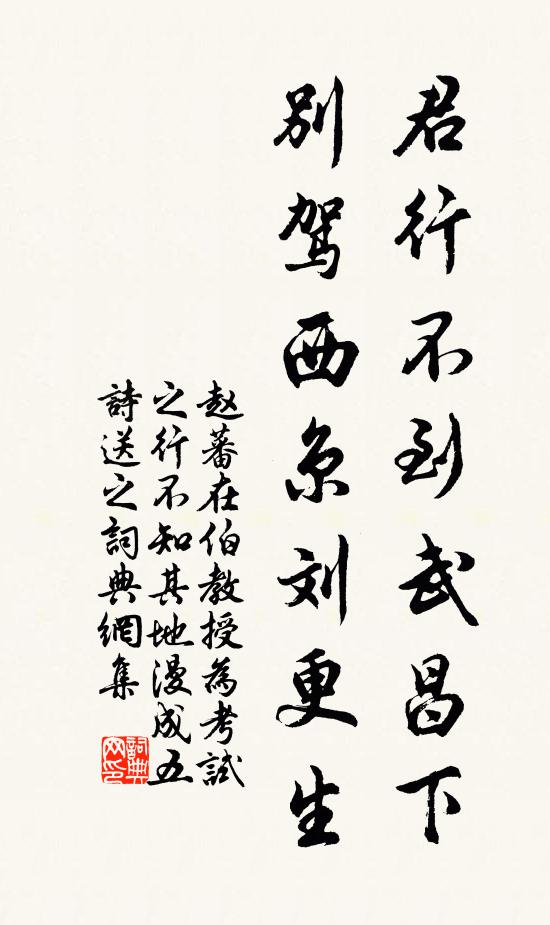 君行不到武昌下
别驾西京刘更生
赵蕃在伯教授為考試
之行不知其地漫成五
詩送之詞典網集
詞典网印